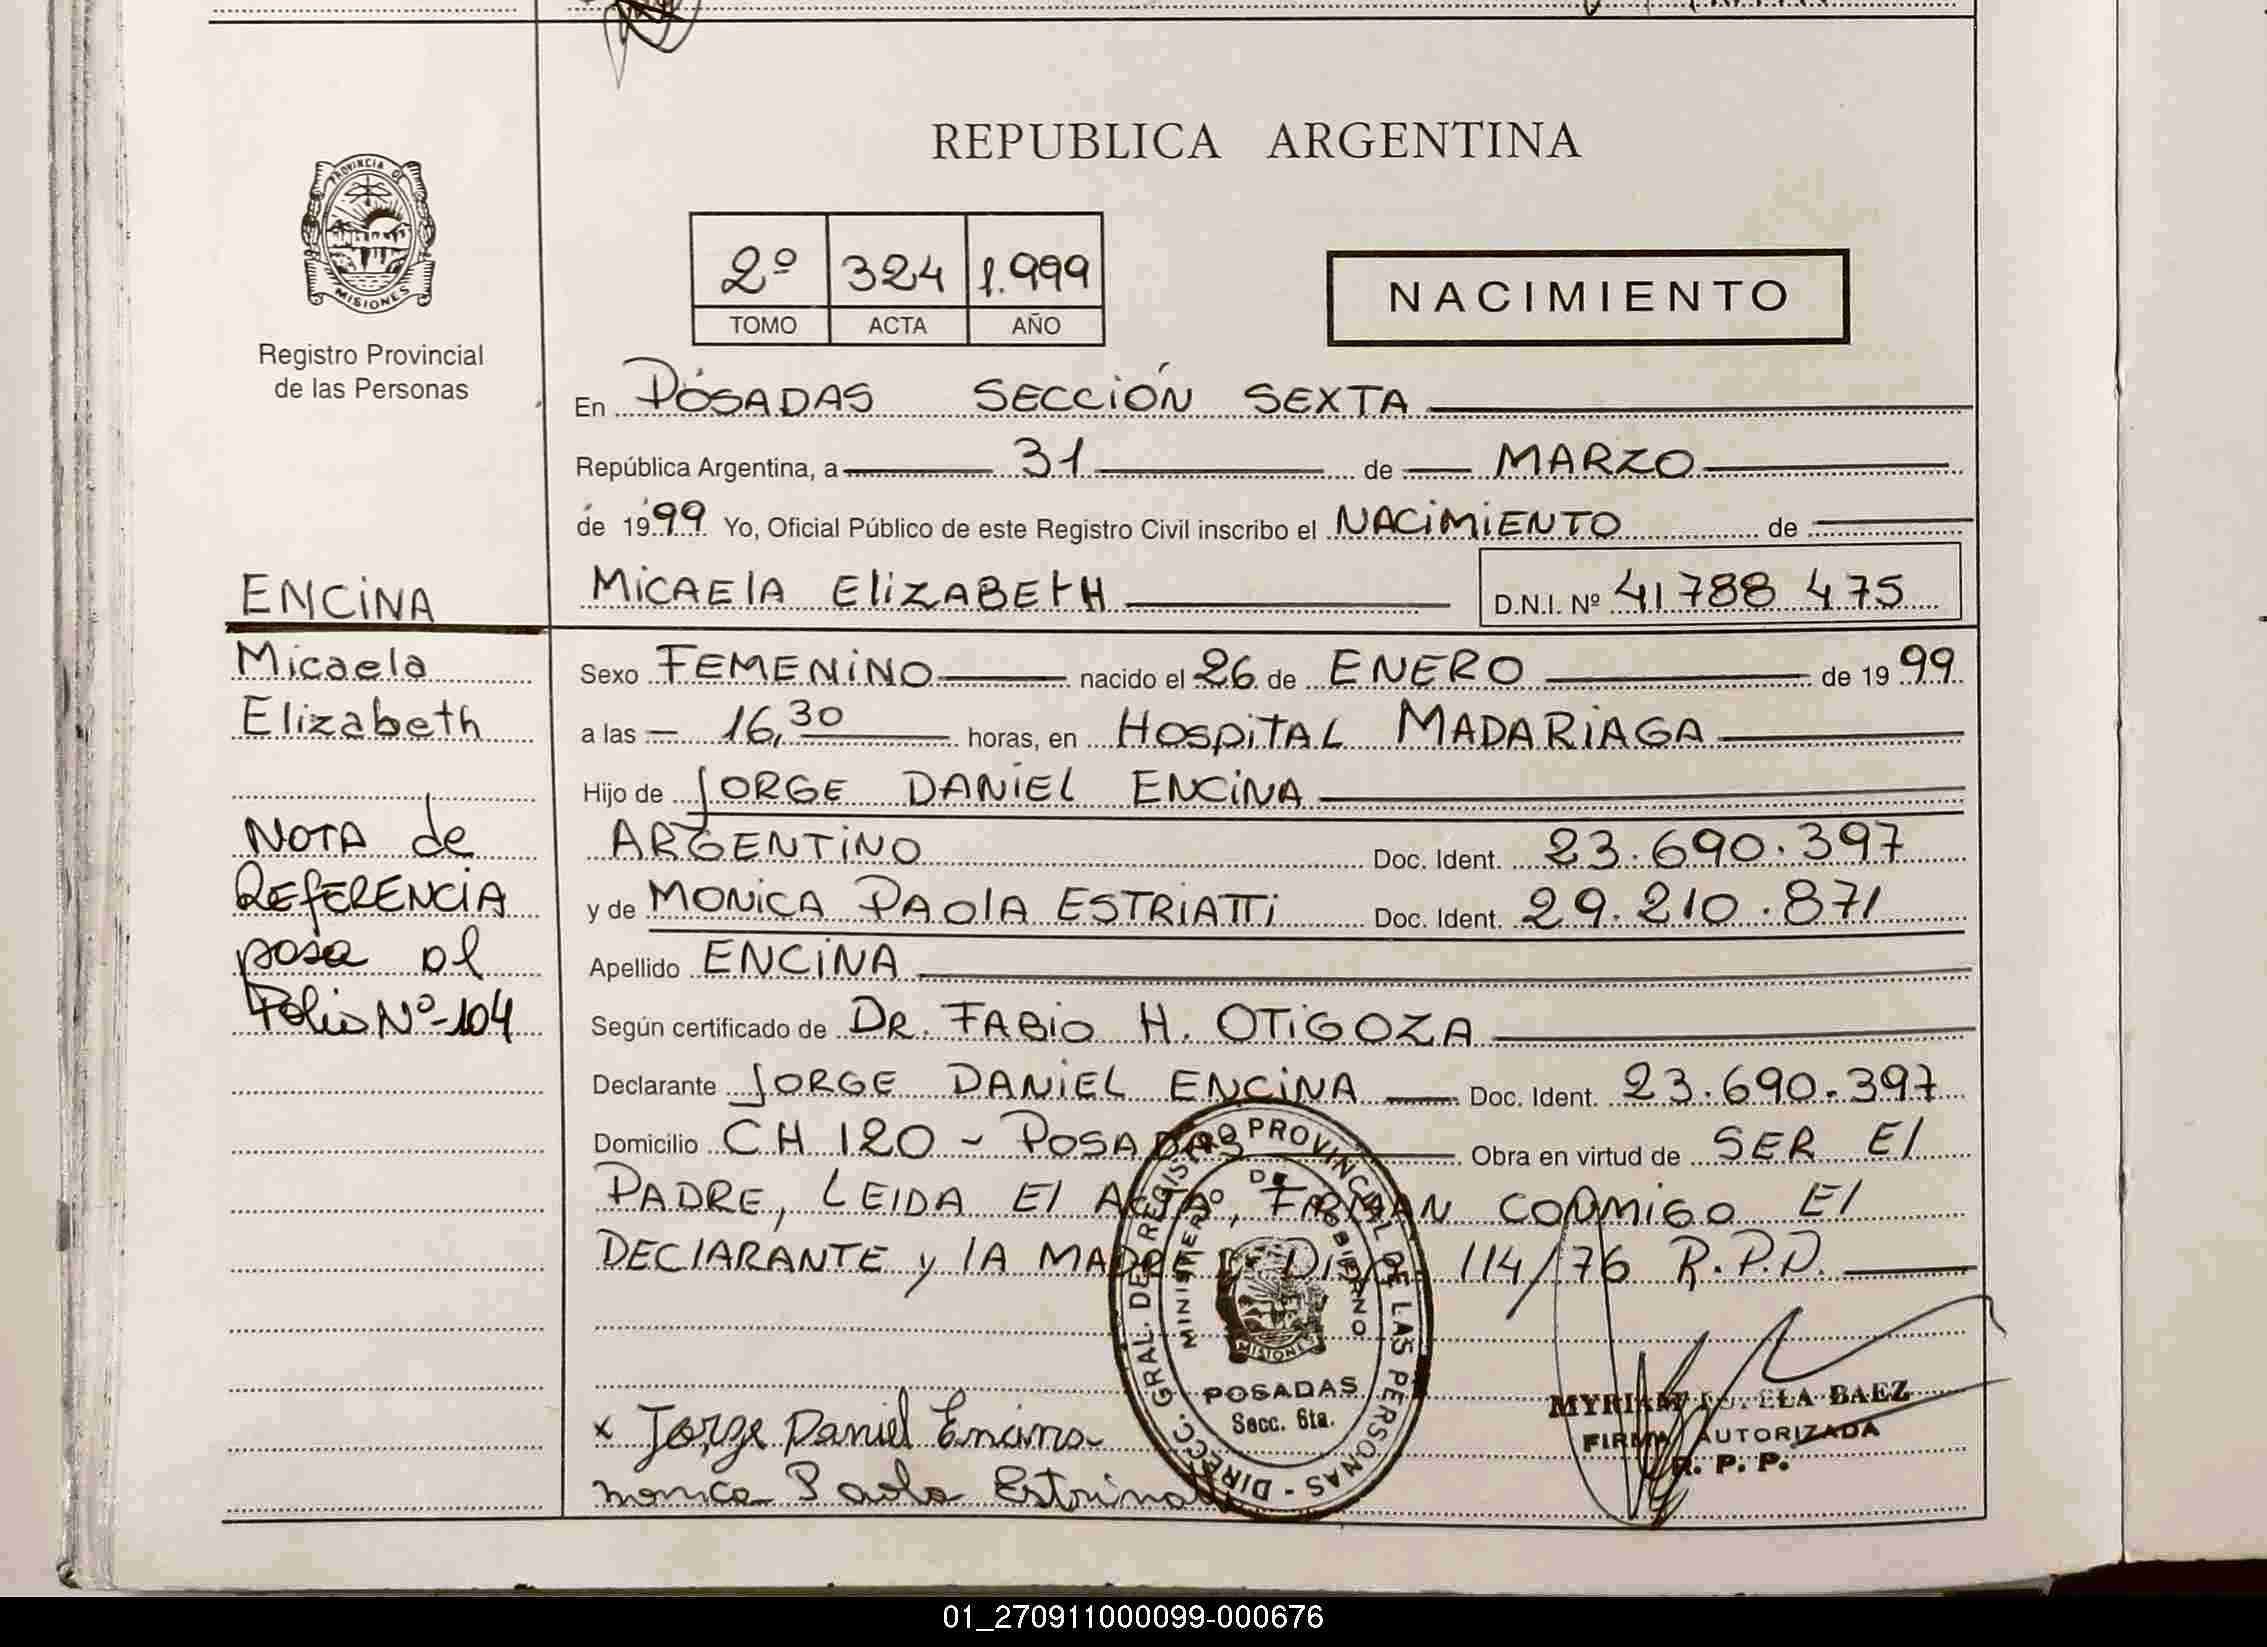 REPUBLICA ARGENTINA
PROVINCIA DE
MISIONES
Registro Provincial
de las Personas
2º 324 1.999
TOMO ACTA AÑO
NACIMIENTO
En POSADAS SECCIÓN SEXTA
República Argentina, a 31 de MARZO
de 1999 Yo, Oficial Público de este Registro Civil inscribo el NACIMIENTO de
MICAElA EliZABEtH D.N.I. Nº 41 788 475
ENCINA
Micaela
Elizabeth
NOTA de
REfERENCIA
pasa al
Folio Nº-104
Sexo FEMENINO nacido el 26 de ENERO de 1999
a las 16,30 horas, en HOSpITAL MADARIAGA
Hijo de JORGE DANIEL ENCINA
ARGENTINO Doc. Ident. 23.690.397
y de MONICA PAOlA ESTRIATTi Doc. Ident. 29.210.871
Apellido ENCINA
Según certificado de DR. FABIO H. OTIGOZA
Declarante JORGE DANIEL ENCINA Doc. Ident. 23.690.397
Domicilio CH 120 - POSADAS Obra en virtud de SER El
PADRE, LEIDA El ACTA, FIRMAN CONMIGO El
DEClARANTE y lA MADRE 114/76 R.P.P.
DIRECC. GRAL. DEL REGISTRO PROVINCIAL DE LAS PERSONAS -
MINISTERIO DE GOBIERNO
MISIONES
POSADAS
Secc. 6ta.
x Jorge Daniel Encina
monica Paola
MYRIAM BAEZ
FIRMA AUTORIZADA
R. P. P.
01_270911000099-000676